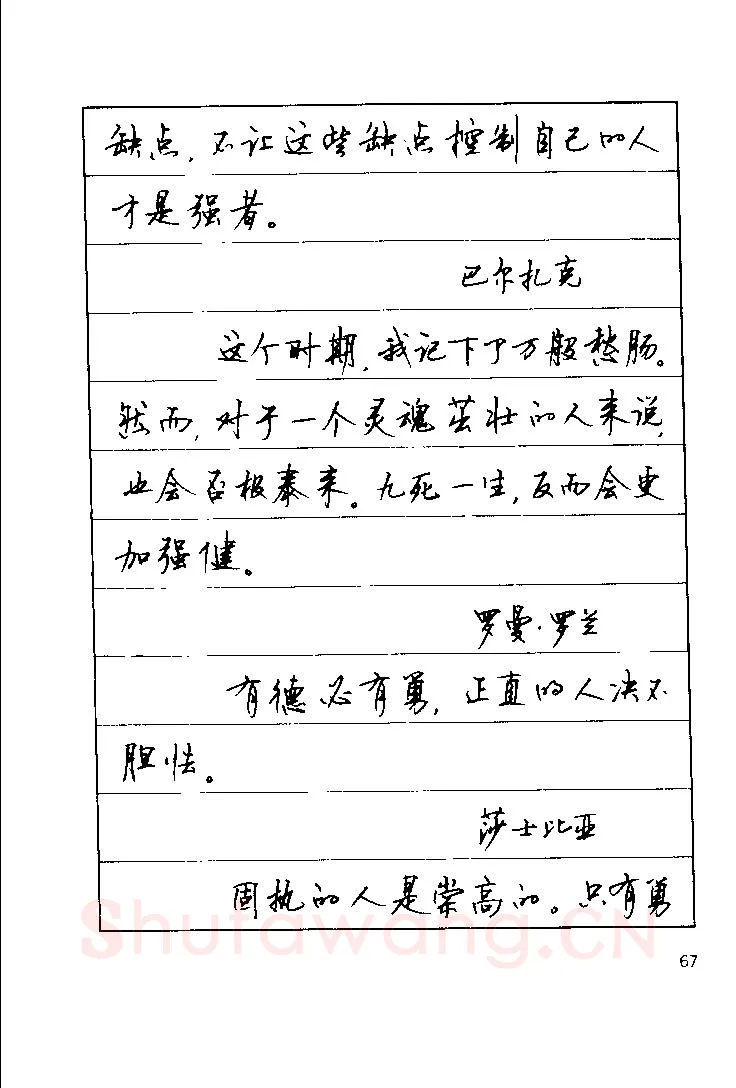 缺点，不让这些缺点控制自己的人
才是强者。
巴尔扎克
这个时期，我记下了万般愁肠。
然而，对于一个灵魂茁壮的人来说，
也会否极泰来。九死一生，反而会更
加强健。
罗曼·罗兰
有德必有勇，正直的人决不
胆怯。
莎士比亚
固执的人是崇高的。只有勇
Shufawang.CN
67